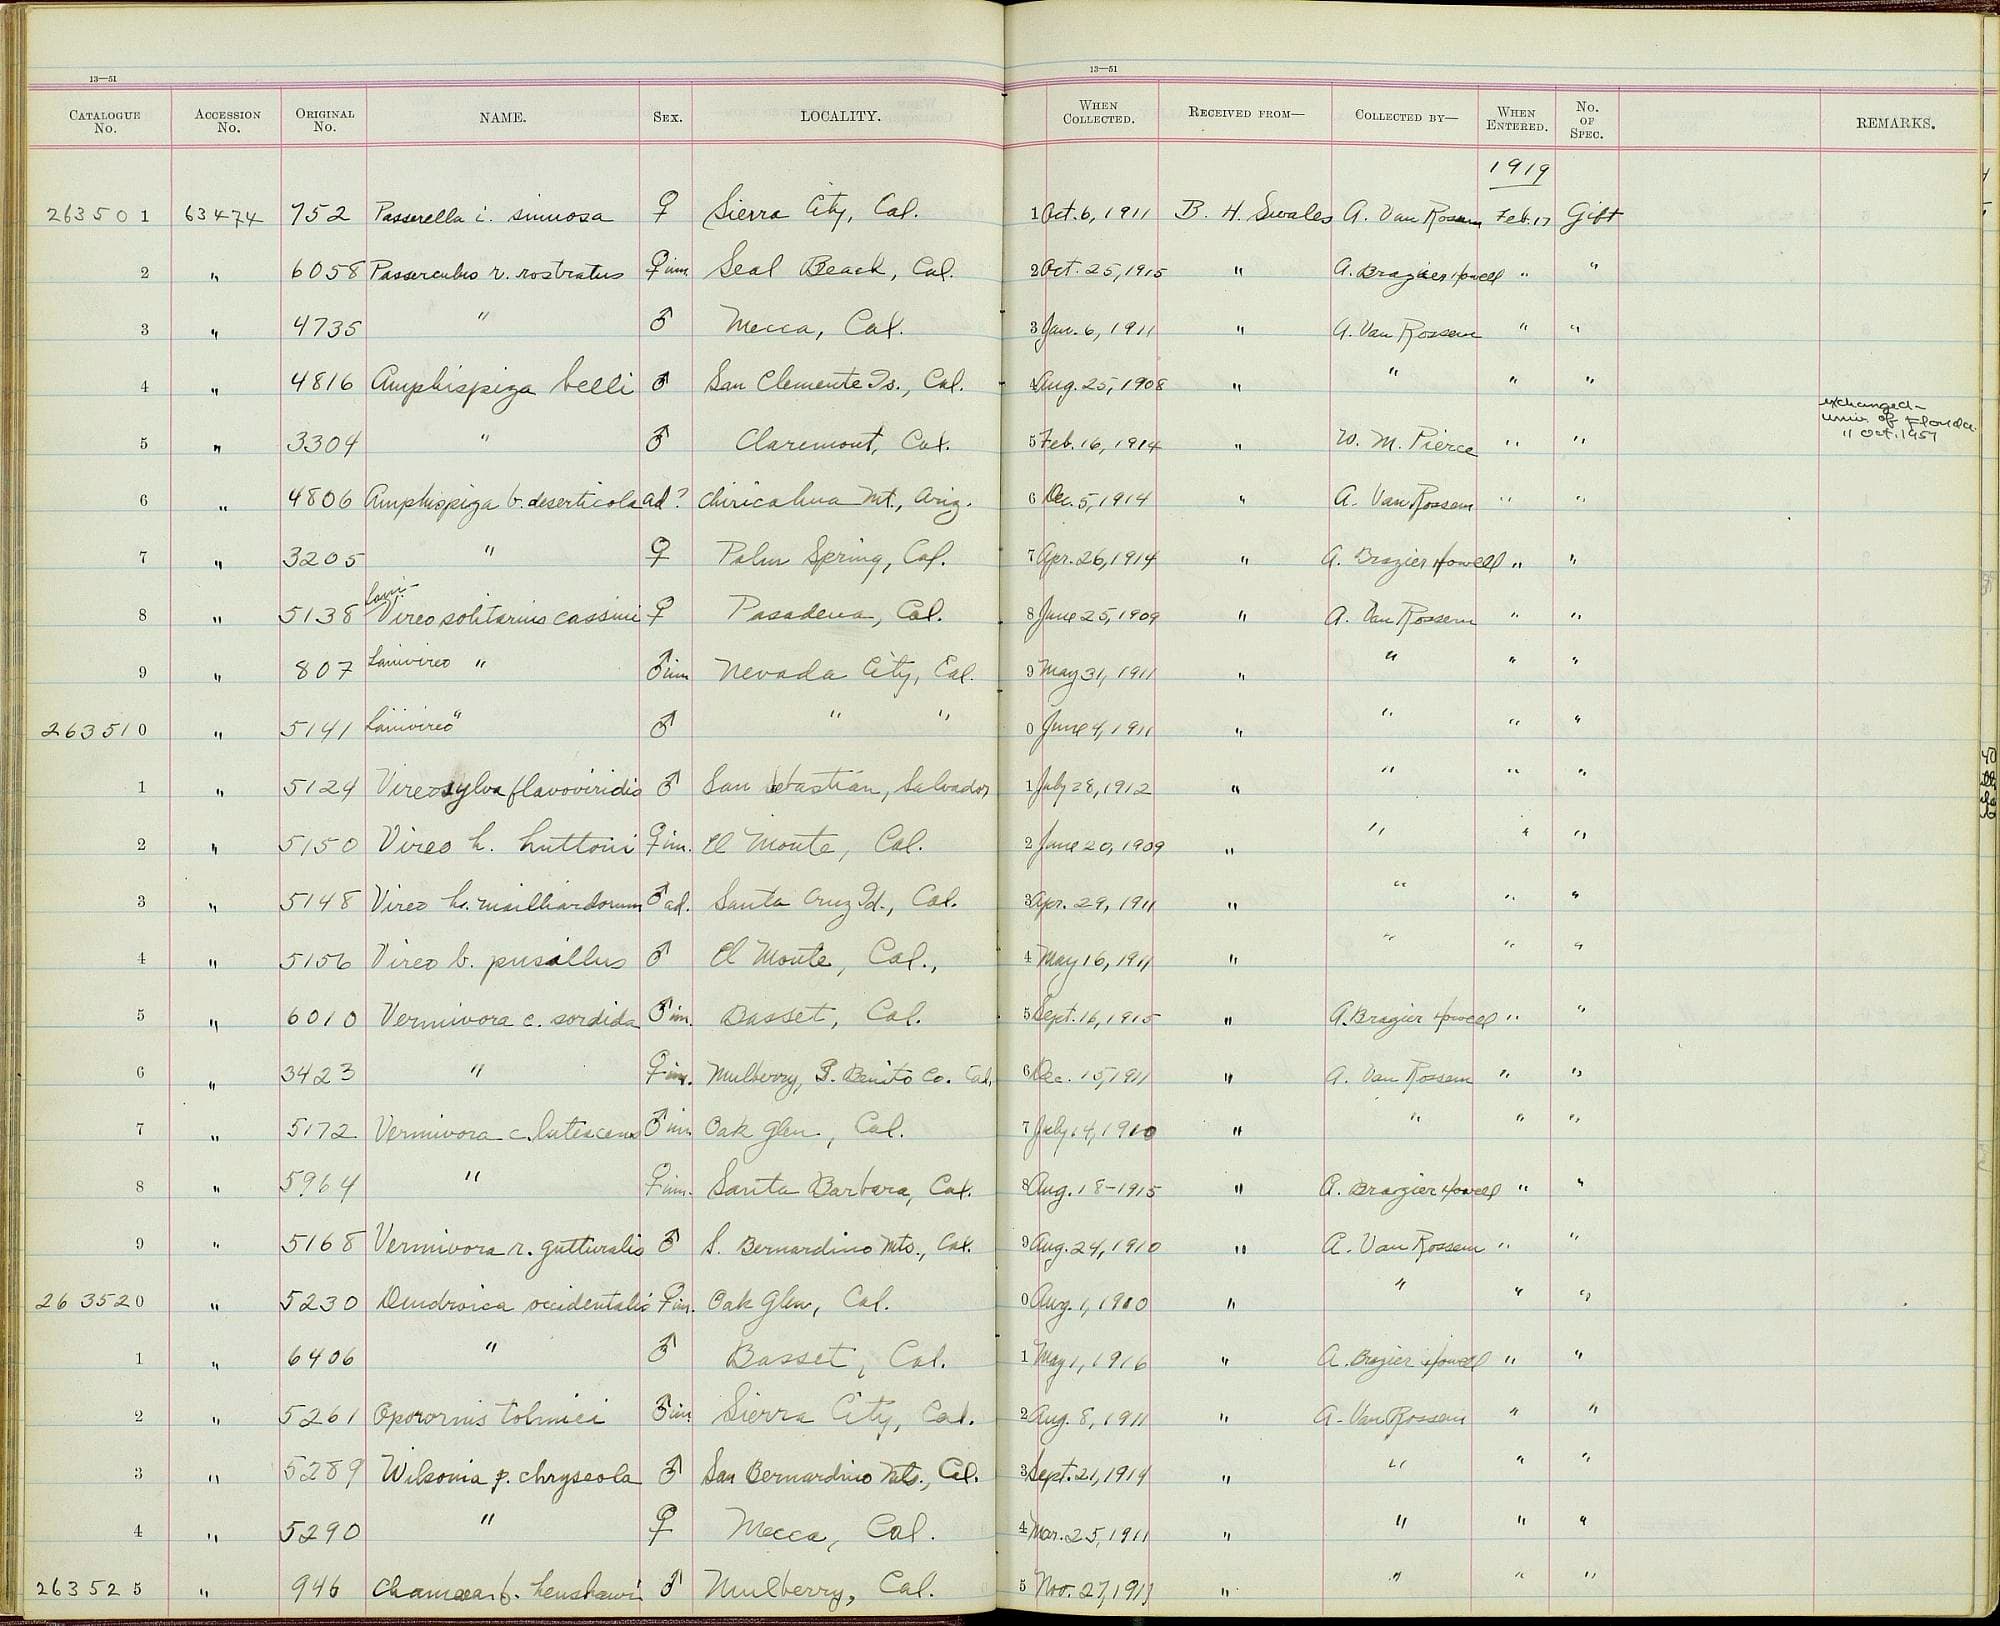 13—51 13—51
CATALOGUE No. ACCESSION No. ORIGINAL No. NAME. SEX. LOCALITY. WHEN COLLECTED. RECEIVED FROM— COLLECTED BY— WHEN ENTERED. No. OF SPEC. REMARKS.
1919
263501 63474 752 Passerella i. sinuosa ♀ Sierra City, Cal. 1 Oct. 6, 1911 B. H. Swales A. Van Rossem Feb. 17 Gift
2 " 6058 Passerculus r. rostratus ♀ im. Seal Beach, Cal. 2 Oct. 25, 1915 " A. Brazier Howell " "
3 " 4735 " ♂ Mecca, Cal. 3 Jan. 6, 1911 " A. Van Rossem " "
4 " 4816 Amphispiza belli ♂ San Clemente Is., Cal. 4 Aug. 25, 1908 " " " "
exchanged— Univ. of Florida 11 Oct. 1957
5 " 3304 " ♂ Claremont, Cal. 5 Feb. 16, 1914 " W. M. Pierce " "
6 " 4806 Amphispiza b. deserticola ad? Chiricahua Mt., Ariz. 6 Dec. 5, 1914 " A. Van Rossem " "
7 " 3205 " ♀ Palm Spring, Cal. 7 Apr. 26, 1914 " A. Brazier Howell " "
8 " 5138 Lani- Vireo solitarius cassini ♀ Pasadena, Cal. 8 June 25, 1909 " A. Van Rossem " "
9 " 807 Lanivireo " ♂ im Nevada City, Cal. 9 May 31, 1911 " " " "
263510 " 5141 Lanivireo " ♂ " " 0 June 4, 1911 " " " "
1 " 5124 Vireosylva flavoviridis ♂ San Sebastian, Salvador 1 July 28, 1912 " " " "
2 " 5150 Vireo h. huttoni ♀ im. El Monte, Cal. 2 June 20, 1909 " " " "
3 " 5148 Vireo h. mailliardorum ♂ ad. Santa Cruz Id., Cal. 3 Apr. 29, 1911 " " " "
4 " 5156 Vireo b. pusillus ♂ El Monte, Cal., 4 May 16, 1911 " " " "
5 " 6010 Vermivora c. sordida ♂ im. Basset, Cal. 5 Sept. 16, 1915 " A. Brazier Howell " "
6 " 3423 " ♀ im. Mulberry, S. Benito Co. Cal. 6 Dec. 15, 1911 " A. Van Rossem " "
7 " 5172 Vermivora c. lutescens ♂ im. Oak Glen, Cal. 7 July 14, 1910 " " " "
8 " 5964 " ♀ im. Santa Barbara, Cal. 8 Aug. 18-1915 " A. Brazier Howell " "
9 " 5168 Vermivora r. gutturalis ♂ S. Bernardino Mts., Cal. 9 Aug. 24, 1910 " A. Van Rossem " "
263520 " 5230 Dendroica occidentalis ♀ im. Oak Glen, Cal. 0 Aug. 1, 1910 " " " "
1 " 6406 " ♂ Basset, Cal. 1 May 1, 1916 " A. Brazier Howell " "
2 " 5261 Oporornis tolmiei ♂ im Sierra City, Cal. 2 Aug. 8, 1911 " A. Van Rossem " "
3 " 5289 Wilsonia p. chryseola ♂ San Bernardino Mts., Cal. 3 Sept. 21, 1914 " " " "
4 " 5290 " ♀ Mecca, Cal. 4 Mar. 25, 1911 " " " "
263525 " 946 Chamaea f. henshawi ♂ Mulberry, Cal. 5 Nov. 27, 1911 " " " "